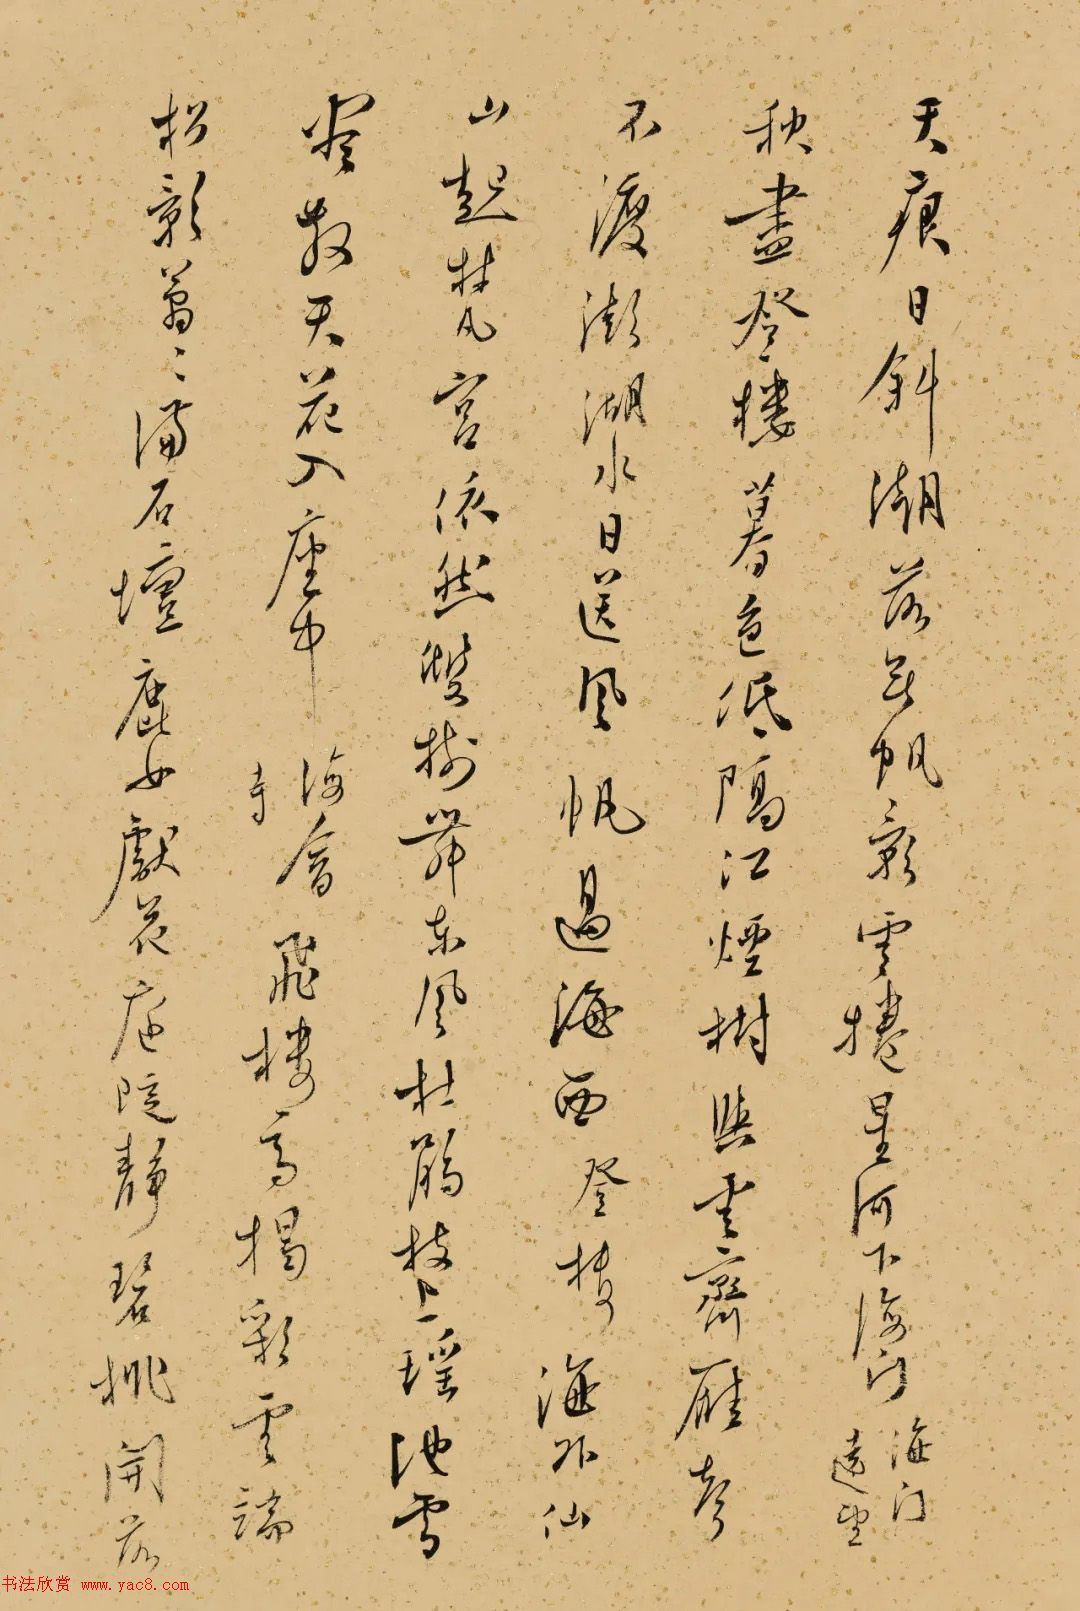 天痕日斜潮落帆影雲捲星河下海門 海門遠望
秋盡登樓暮色低隔江煙樹與雲齊雁聲
不渡澎湖水日送風帆過海西 登樓 海外仙
山起梵宮依然雙樹舞東風杜鵑枝上瑤池雪
散天花入座中 海會寺 飛樓高揭彩雲端
松影蕭〻滿石壇鹿女獻花庭院靜碧桃開落
书法欣赏 www.yac8.com